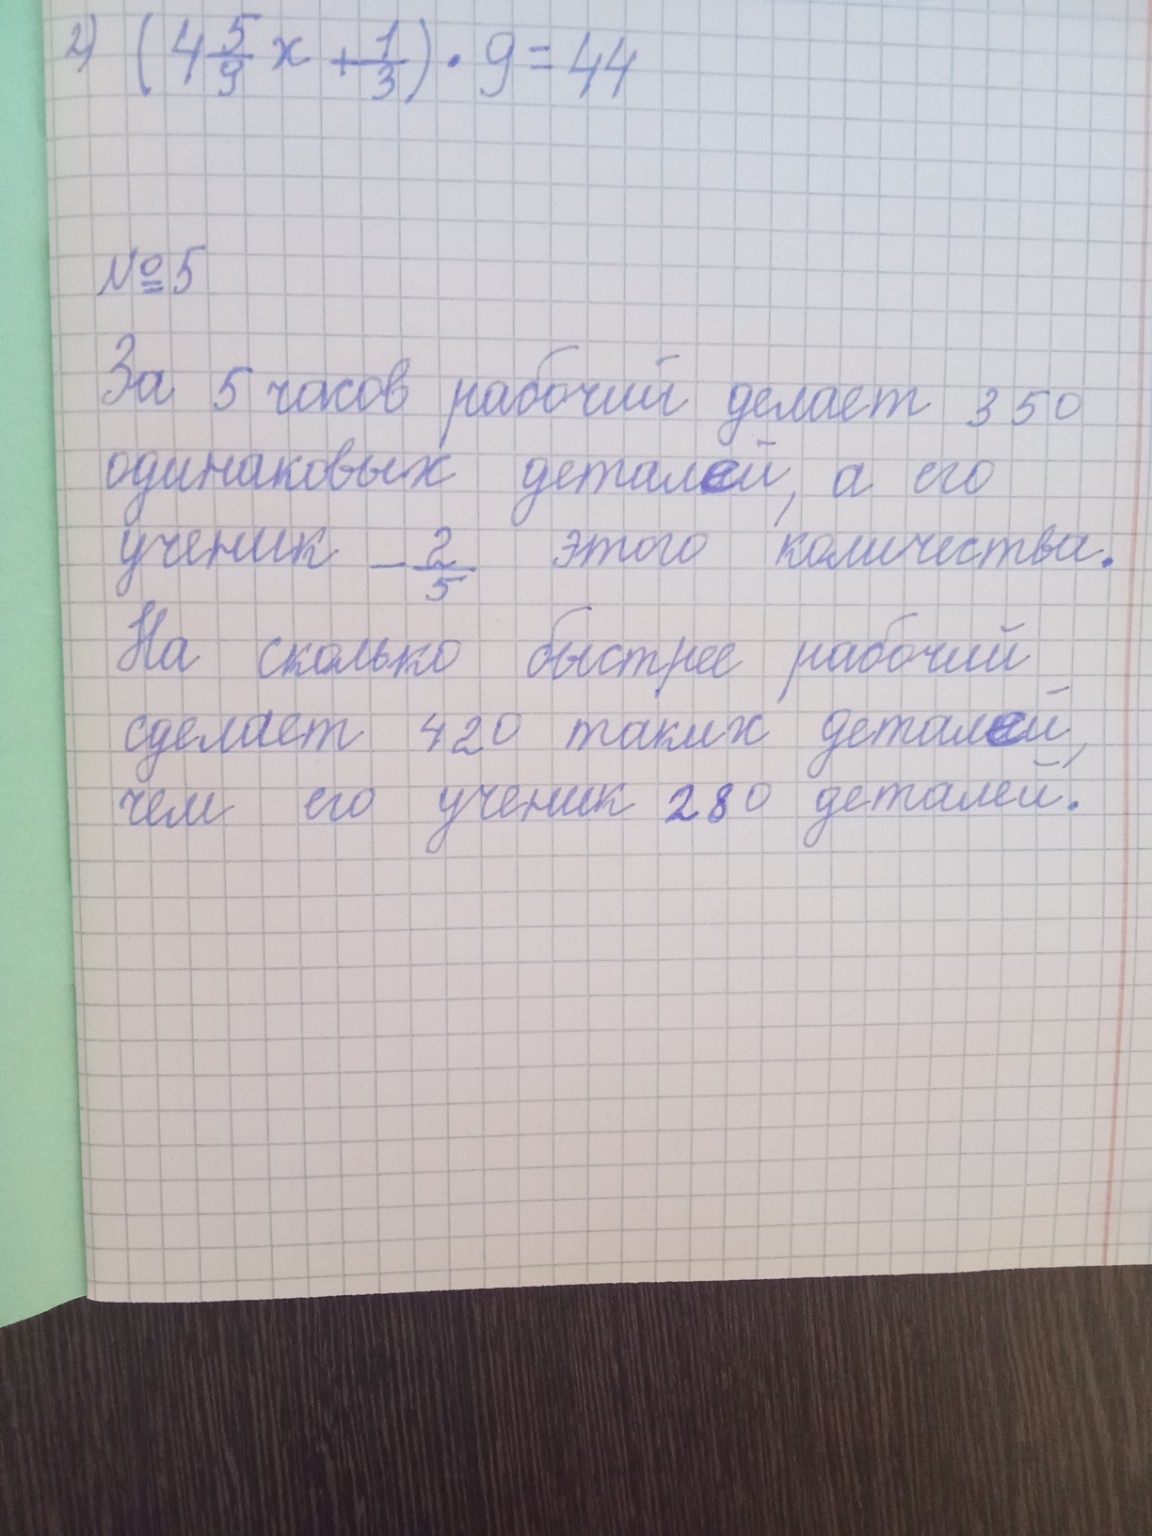 2) (4 5/9 x + 1/3) · 9 = 44
№5
За 5 часов рабочий делает 350
одинаковых деталей, а его
ученик – 2/5 этого количества.
На сколько быстрее рабочий
сделает 420 таких деталей,
чем его ученик 280 деталей.